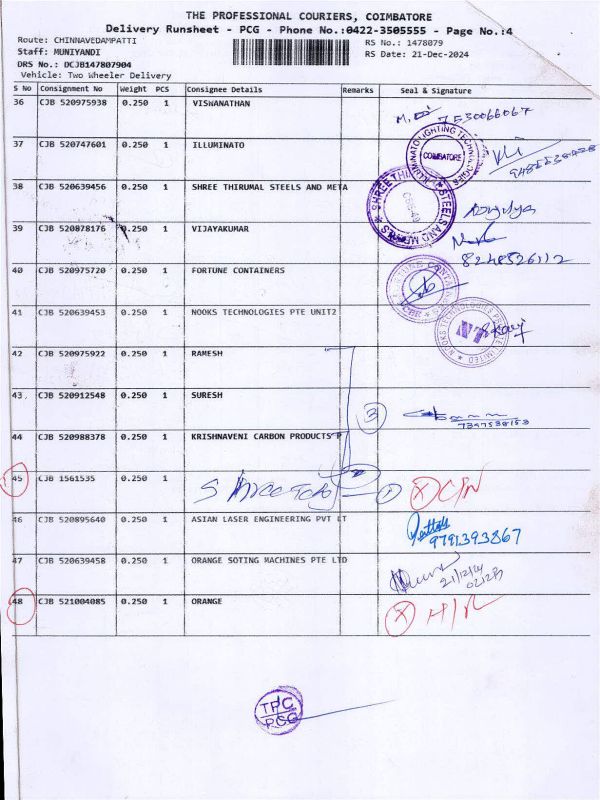 THE PROFESSIONAL COURIERS, COIMBATORE
Delivery Runsheet - PCG - Phone No.:0422-3505555 - Page No.:4
Route: CHINNAVEDAMPATTI
RS No.: 1478079
Staff: MUNIYANDI
RS Date: 21-Dec-2024
DRS No.: DCJB147807904
Vehicle: Two Wheeler Delivery
S No Consignment No Weight PCS Consignee Details Remarks Seal & Signature
36 CJB 520975938 0.250 1 VISWANATHAN
7530066067
37 CJB 520747601 0.250 1 ILLUMINATO
ILLUMINATO LIGHTING TECHNOLOGIES
COIMBATORE
38 CJB 520639456 0.250 1 SHREE THIRUMAL STEELS AND META
39 CJB 520878176 0.250 1 VIJAYAKUMAR
8248526112
40 CJB 520975720 0.250 1 FORTUNE CONTAINERS
41 CJB 520639453 0.250 1 NOOKS TECHNOLOGIES PTE UNIT2
NOOKS TECHNOLOGIES PTE LIMITED
NT
42 CJB 520975922 0.250 1 RAMESH
43 CJB 520912548 0.250 1 SURESH
3
44 CJB 520988378 0.250 1 KRISHNAVENI CARBON PRODUCTS P
45 CJB 1561535 0.250 1
46 CJB 520895640 0.250 1 ASIAN LASER ENGINEERING PVT LT
9791393867
47 CJB 520639458 0.250 1 ORANGE SOTING MACHINES PTE LTD
21/12/24
48 CJB 521004085 0.250 1 ORANGE
X
TPC
PCG